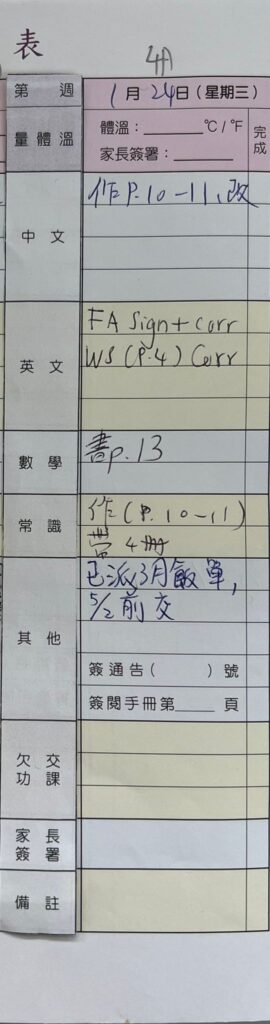 表
4A
第 週 1月24日(星期三)
量體溫 體溫：______°C/°F 完成
家長簽署：______
中文 作P.10-11、改
英文 FA Sign + corr
WS (P.4) Corr
數學 書p.13
常識 作(P.10-11)
常4冊
其他 已派3月飯單,
5/2前交
簽通告( )號
簽閱手冊第____頁
欠交功課
家長簽署
備註